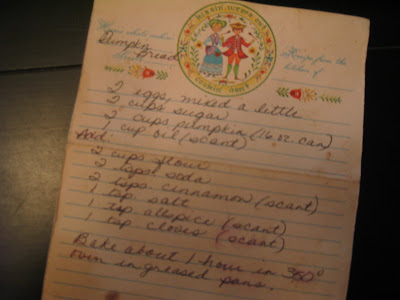 KISSIN' WEARS OUT
COOKIN' DON'T
Here's what's cookin'
Recipe from the
kitchen of
Pumpkin
Bread
2 eggs, mixed a little
2 cups sugar
2 cups pumpkin (16 oz. can)
1 cup oil (scant)
Add:
2 cups flour
2 tsps. soda
2 tsps. cinnamon (scant)
1 tsp. salt
1 tsp allspice (scant)
1 tsp cloves (scant)
Bake about 1 hour in 350°
oven in greased pans.